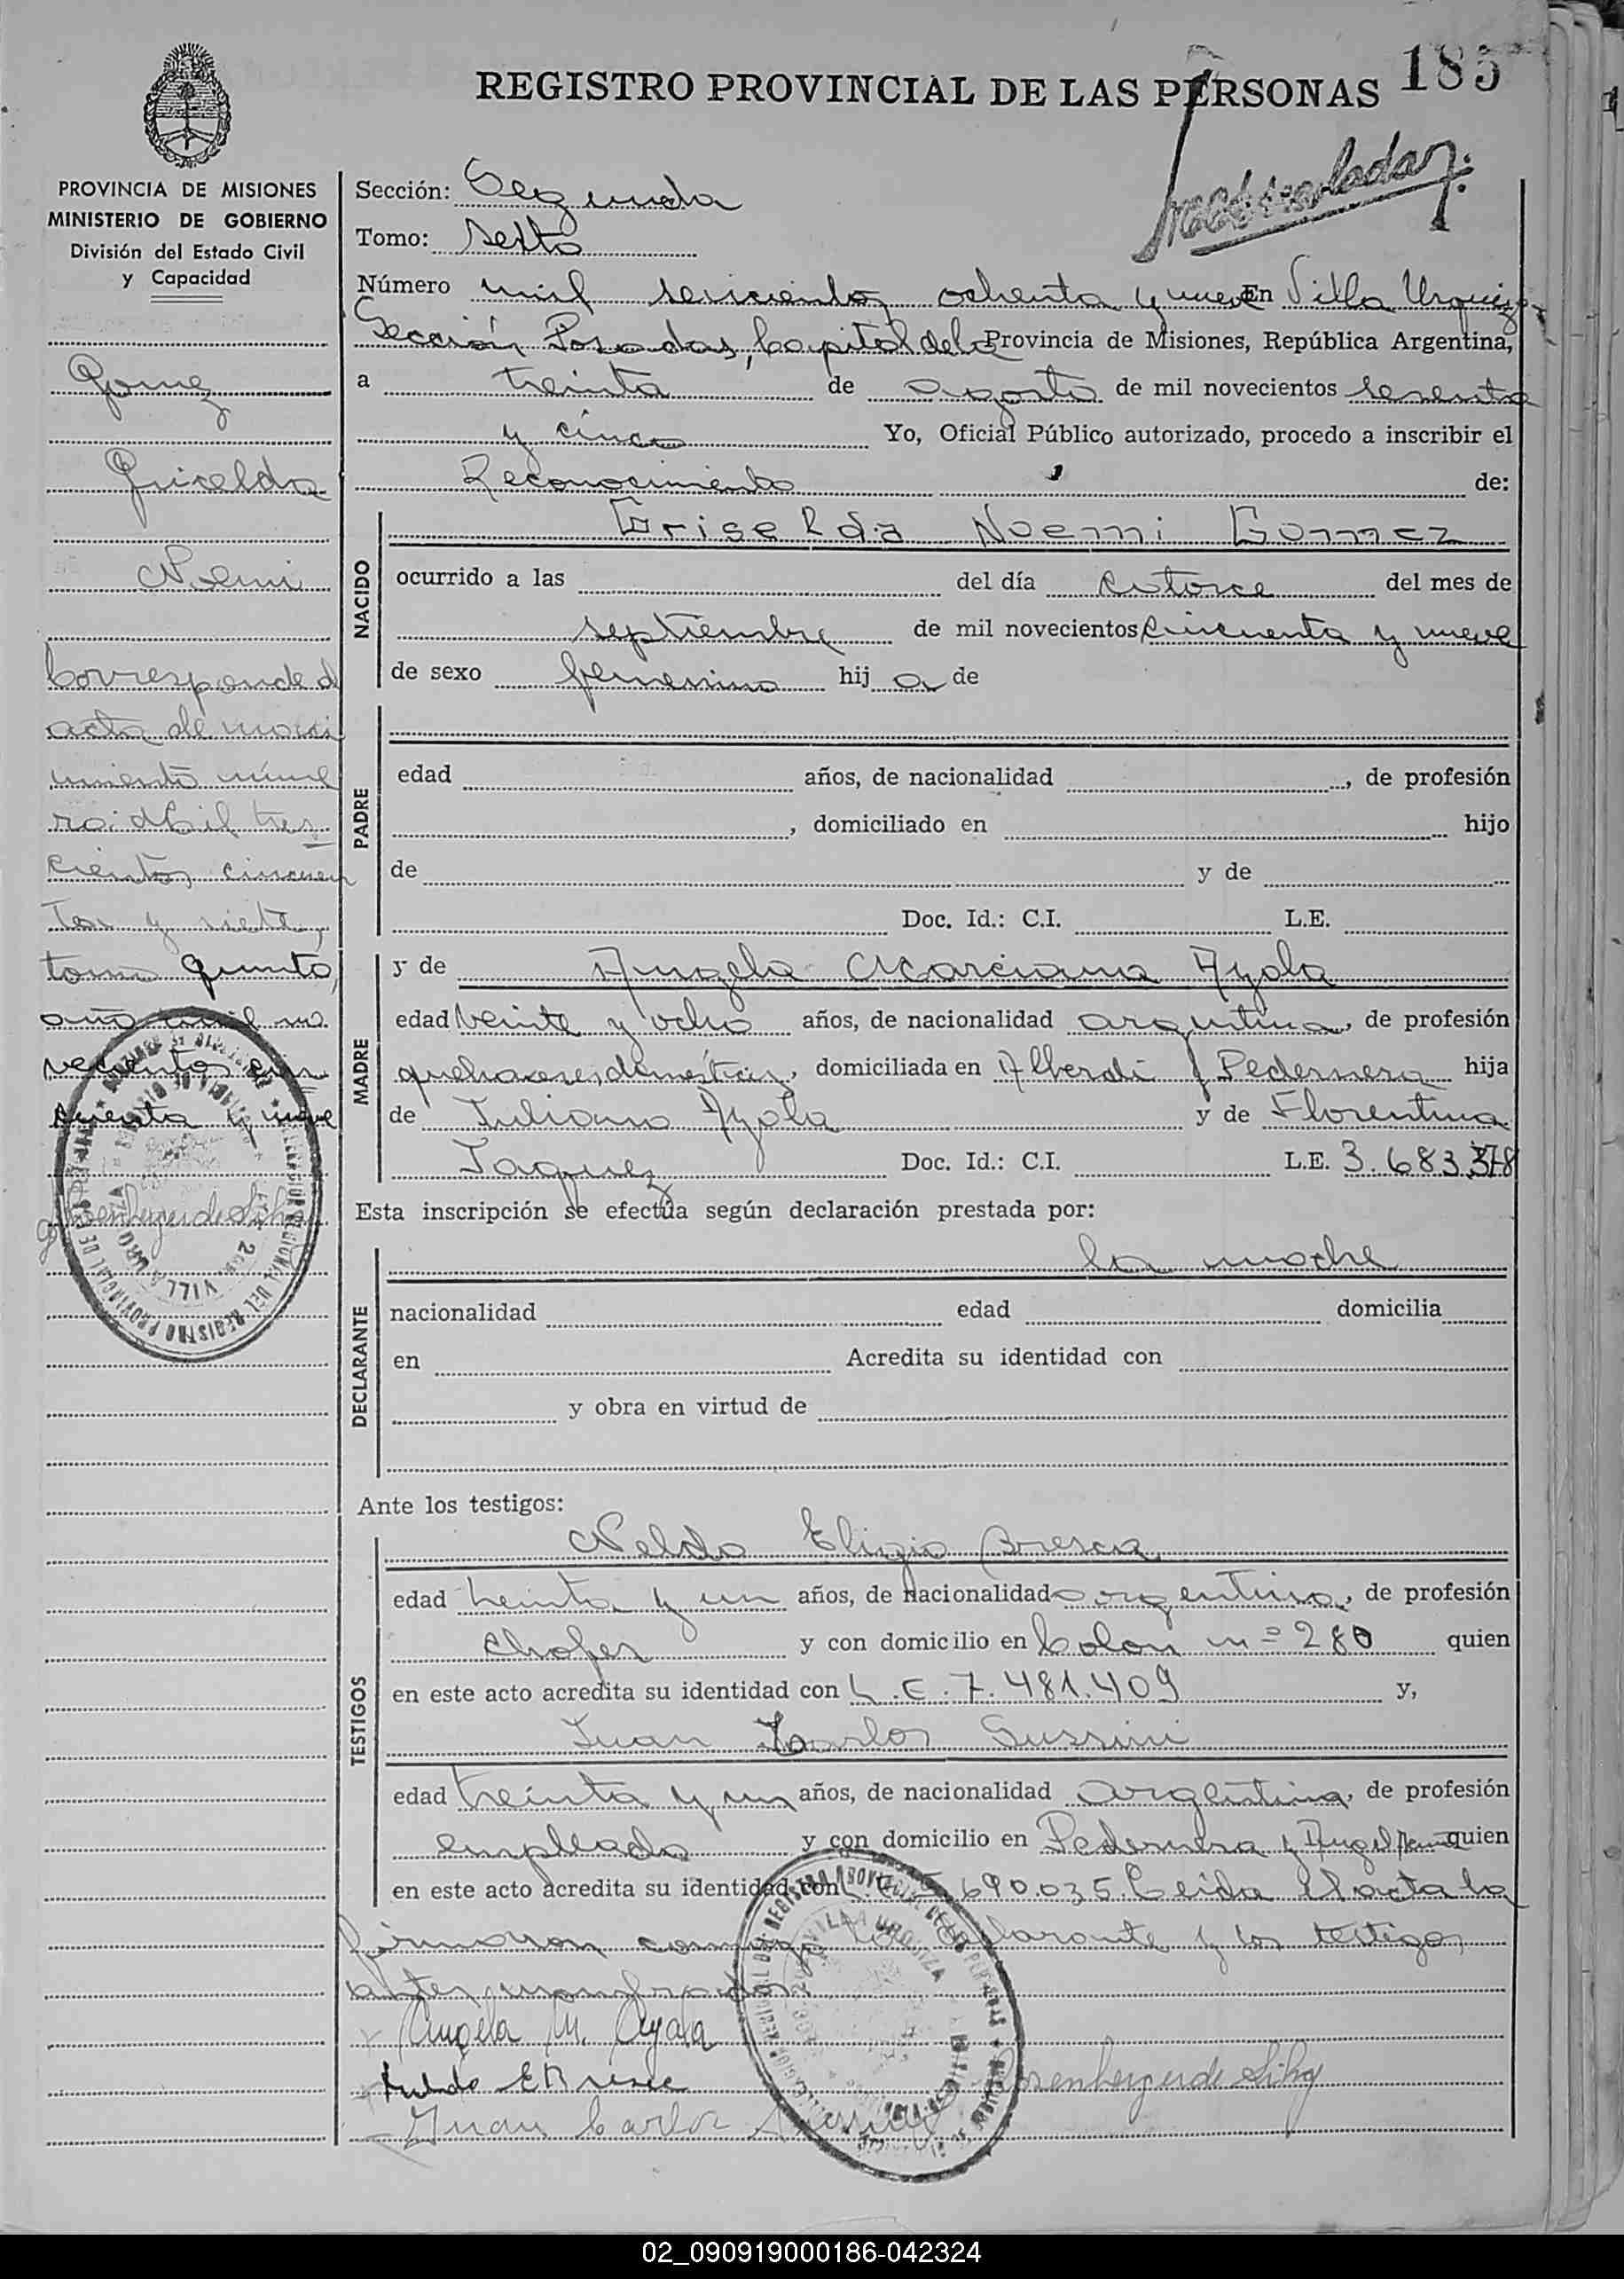 185
REGISTRO PROVINCIAL DE LAS PERSONAS
PROVINCIA DE MISIONES
MINISTERIO DE GOBIERNO
División del Estado Civil
y Capacidad
Gomez
Griselda
Noemi
Corresponde al
acta de naci
miento núme
ro: Mil tres
cientos cincuen
ta y siete,
tomo quinto,
año mil no
vecientos cin
cuenta y nueve
Sección: Segunda
Tomo: Sexto
Número mil seiscientos ochenta y nueve En Villa Urquiza
Sección Posadas, Capital de la Provincia de Misiones, República Argentina,
a treinta de agosto de mil novecientos sesenta
y cinco Yo, Oficial Público autorizado, procedo a inscribir el
Reconocimiento de:
NACIDO
Griselda Noemi Gomez
ocurrido a las del día catorce del mes de
septiembre de mil novecientos cincuenta y nueve
de sexo femenino hij a de
PADRE
edad años, de nacionalidad , de profesión
, domiciliado en hijo
de y de
Doc. Id.: C.I. L.E.
MADRE
y de Angela Marciana Ayala
edad veinte y ocho años, de nacionalidad argentina, de profesión
quehaceres domésticos, domiciliada en Alberdi y Pedernera hija
de Juliano Ayala y de Florentina
Jaquez Doc. Id.: C.I. L.E. 3.683.378
Esta inscripción se efectúa según declaración prestada por:
DECLARANTE
la madre
nacionalidad edad domicilia
en Acredita su identidad con
y obra en virtud de
Ante los testigos:
TESTIGOS
Neldo Eligio Brescia
edad treinta y un años, de nacionalidad argentina, de profesión
chofer y con domicilio en Colon nº 280 quien
en este acto acredita su identidad con L.E. 7.481.409 y,
Juan Carlos Sussini
edad treinta y un años, de nacionalidad argentina, de profesión
empleado y con domicilio en Pedernera y Angel quien
en este acto acredita su identidad con 690.035. Leida el acta la
firmaron conmigo la declarante y los testigos
antes nombrados
Angela M. Ayala
Juan Carlos Sussini
VILLA URQUIZA
02_090919000186-042324